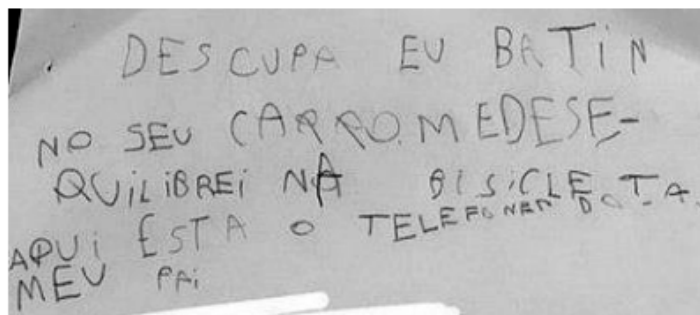 DESCUPA EU BATIN
NO SEU CARRO.MEDESE-
QUILIBREI NA BISICLE.TA.
AQUI ESTA O TELEFONEN DO
MEU PAI